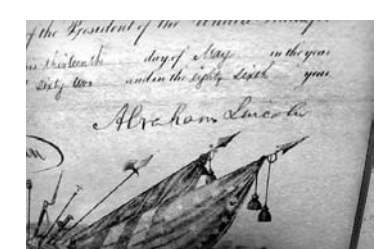 of the President of the United
thirteenth day of May in the year
sixty two and in the eighty sixth year
Abraham Lincoln